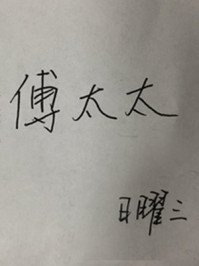 傅太太
日曜三